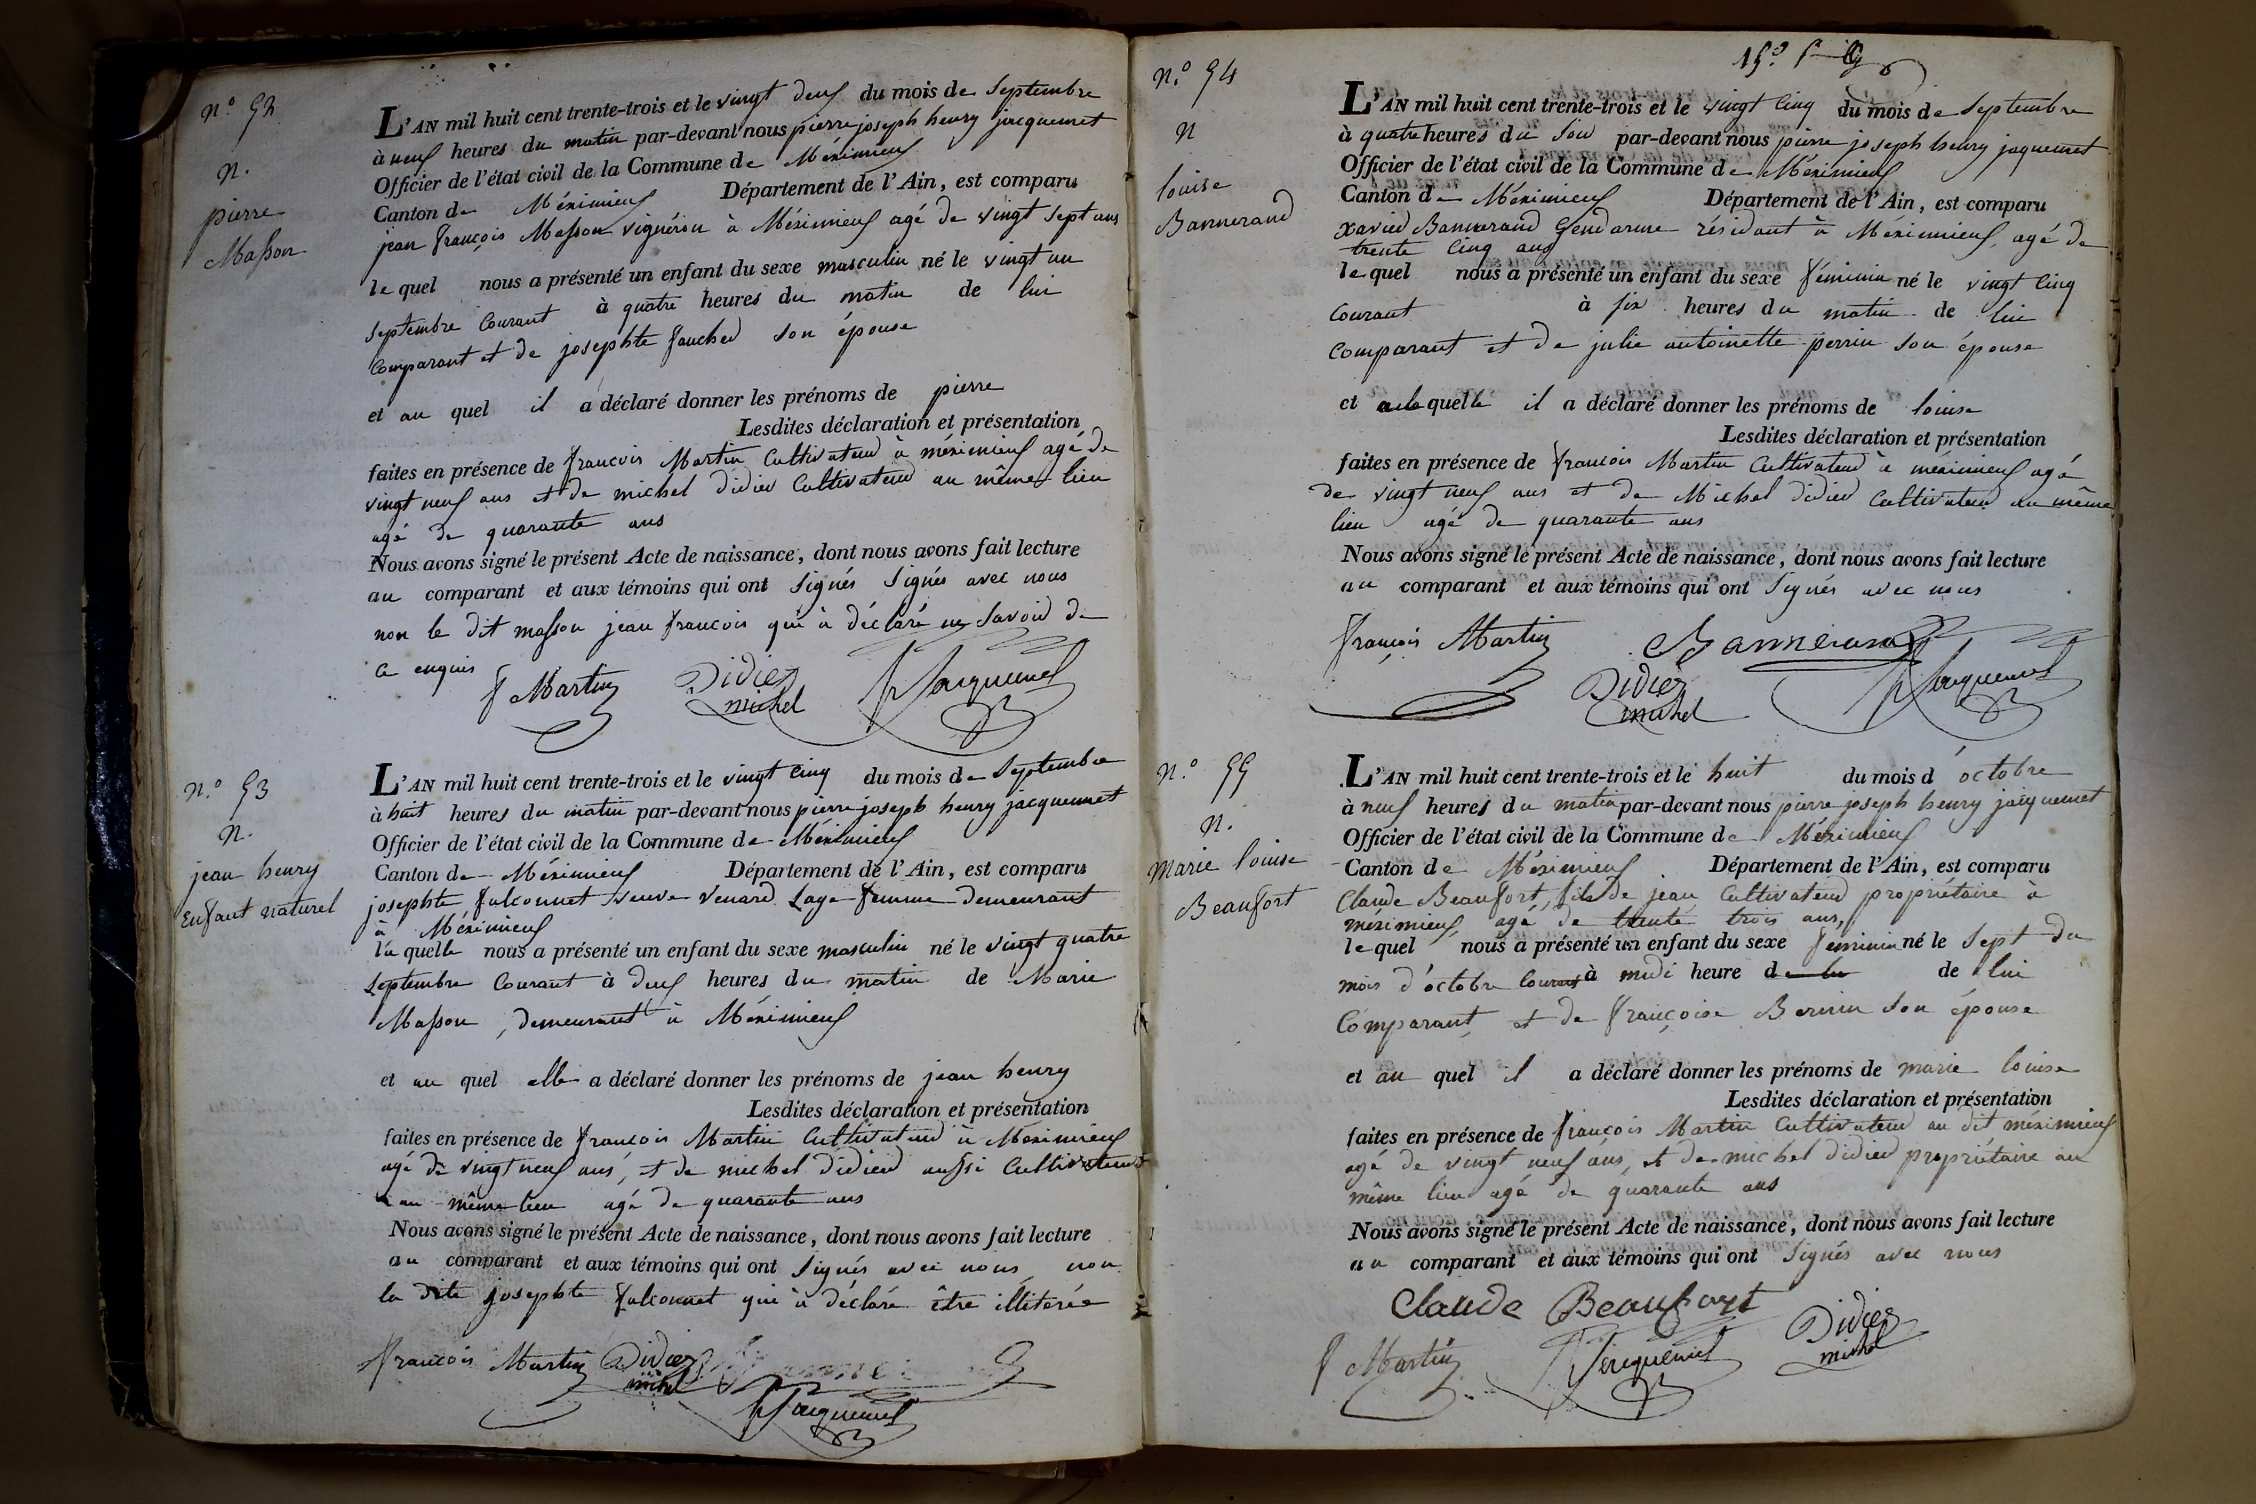 N.° 52
N.
pierre
Masson
L'AN mil huit cent trente-trois et le vingt deux du mois de Septembre
à neuf heures du matin par-devant nous pierre joseph henry jacquemet
Officier de l'état civil de la Commune de Méximieux
Canton de Méximieux Département de l'Ain, est comparu
jean françois Masson vignéron à Méximieux agé de vingt sept ans
le quel nous a présenté un enfant du sexe masculin né le vingt un
septembre Courant à quatre heures du matin de lui
Comparant et de josephte faucher son épouse
et au quel il a déclaré donner les prénoms de pierre
Lesdites déclaration et présentation
faites en présence de françois Martin Cultivateur à méximieux agé de
vingt neuf ans et de michel didier Cultivateur au même lieu
agé de quarante ans
Nous avons signé le présent Acte de naissance, dont nous avons fait lecture
au comparant et aux témoins qui ont Signés Signés avec nous
non le dit masson jean francois qui à déclaré ne Savoir de
ce enquis
f Martin Didier michel Jacquemet
N.° 53
N.
jean henry
Enfant naturel
L'AN mil huit cent trente-trois et le vingt cinq du mois de Septembre
à huit heures du matin par-devant nous pierre joseph henry jacquemet
Officier de l'état civil de la Commune de Méximieux
Canton de Méximieux Département de l'Ain, est comparu
josephte falconnet veuve Venard Sage femme demeurant
à Méximieux
la quelle nous a présenté un enfant du sexe masculin né le vingt quatre
Septembre Courant à deux heures du matin de Marie
Masson, demeurant à Méximieux
et au quel elle a déclaré donner les prénoms de jean henry
Lesdites déclaration et présentation
faites en présence de françois Martin Cultivateur à Méximieux
agé de vingt neuf ans, et de michel didier aussi Cultivateur
au même lieu agé de quarante ans
Nous avons signé le présent Acte de naissance, dont nous avons fait lecture
au comparant et aux témoins qui ont Signés avec nous non
la dite josephte falconnet qui à déclaré être illiterée
françois Martin Didier michel
Jacquemet
N.° 54
N
louise
Bannerand
L'AN mil huit cent trente-trois et le vingt cinq du mois de Septembre
à quatre heures du Soir par-devant nous pierre joseph henry jaquemet
Officier de l'état civil de la Commune de Méximieux
Canton de Méximieux Département de l'Ain, est comparu
xavier Bannerand Gendarme résidant à Méximieux, agé de
trente Cinq ans
le quel nous a présenté un enfant du sexe féminin né le vingt Cinq
Courant à Six heures du matin de lui
Comparant et de julie antoinette perrin Son épouse
et a la quelle il a déclaré donner les prénoms de louise
Lesdites déclaration et présentation
faites en présence de françois Martin Cultivateur à méximieux agé
de vingt neuf ans et de Michel didier Cultivateur au même
lieu agé de quarante ans
Nous avons signé le présent Acte de naissance, dont nous avons fait lecture
au comparant et aux témoins qui ont Signés avec nous
françois Martin Bannerand
Didier michel Jacquemet
N.° 55
N.
Marie louise
Beaufort
L'AN mil huit cent trente-trois et le huit du mois d'octobre
à neuf heures du matin par-devant nous pierre joseph henry jacquemet
Officier de l'état civil de la Commune de Méximieux
Canton de Méximieux Département de l'Ain, est comparu
Claude Beaufort, fils de jean Cultivateur propriétaire à
méximieux, agé de trente trois ans,
le quel nous a présenté un enfant du sexe féminin né le Sept du
mois d'octobre Courant à midi heure de lui
Comparant, et de françoise Bernin Son épouse
et au quel il a déclaré donner les prénoms de marie louise
Lesdites déclaration et présentation
faites en présence de françois Martin Cultivateur au dit méximieux
agé de vingt neuf ans, et de michel didier propriétaire au
même lieu agé de quarante ans
Nous avons signé le présent Acte de naissance, dont nous avons fait lecture
au comparant et aux témoins qui ont Signés avec nous
Claude Beaufort
f Martin Jacquemet Didier michel